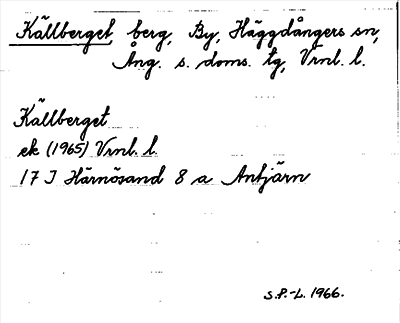 Källberget berg, By, Häggdångers sn,
Ång. s. doms. tg, Vrnl. l.
Källberget
ek (1965) Vrnl. l.
17 J Härnösand 8 a Antjärn
S.P.-L. 1966.